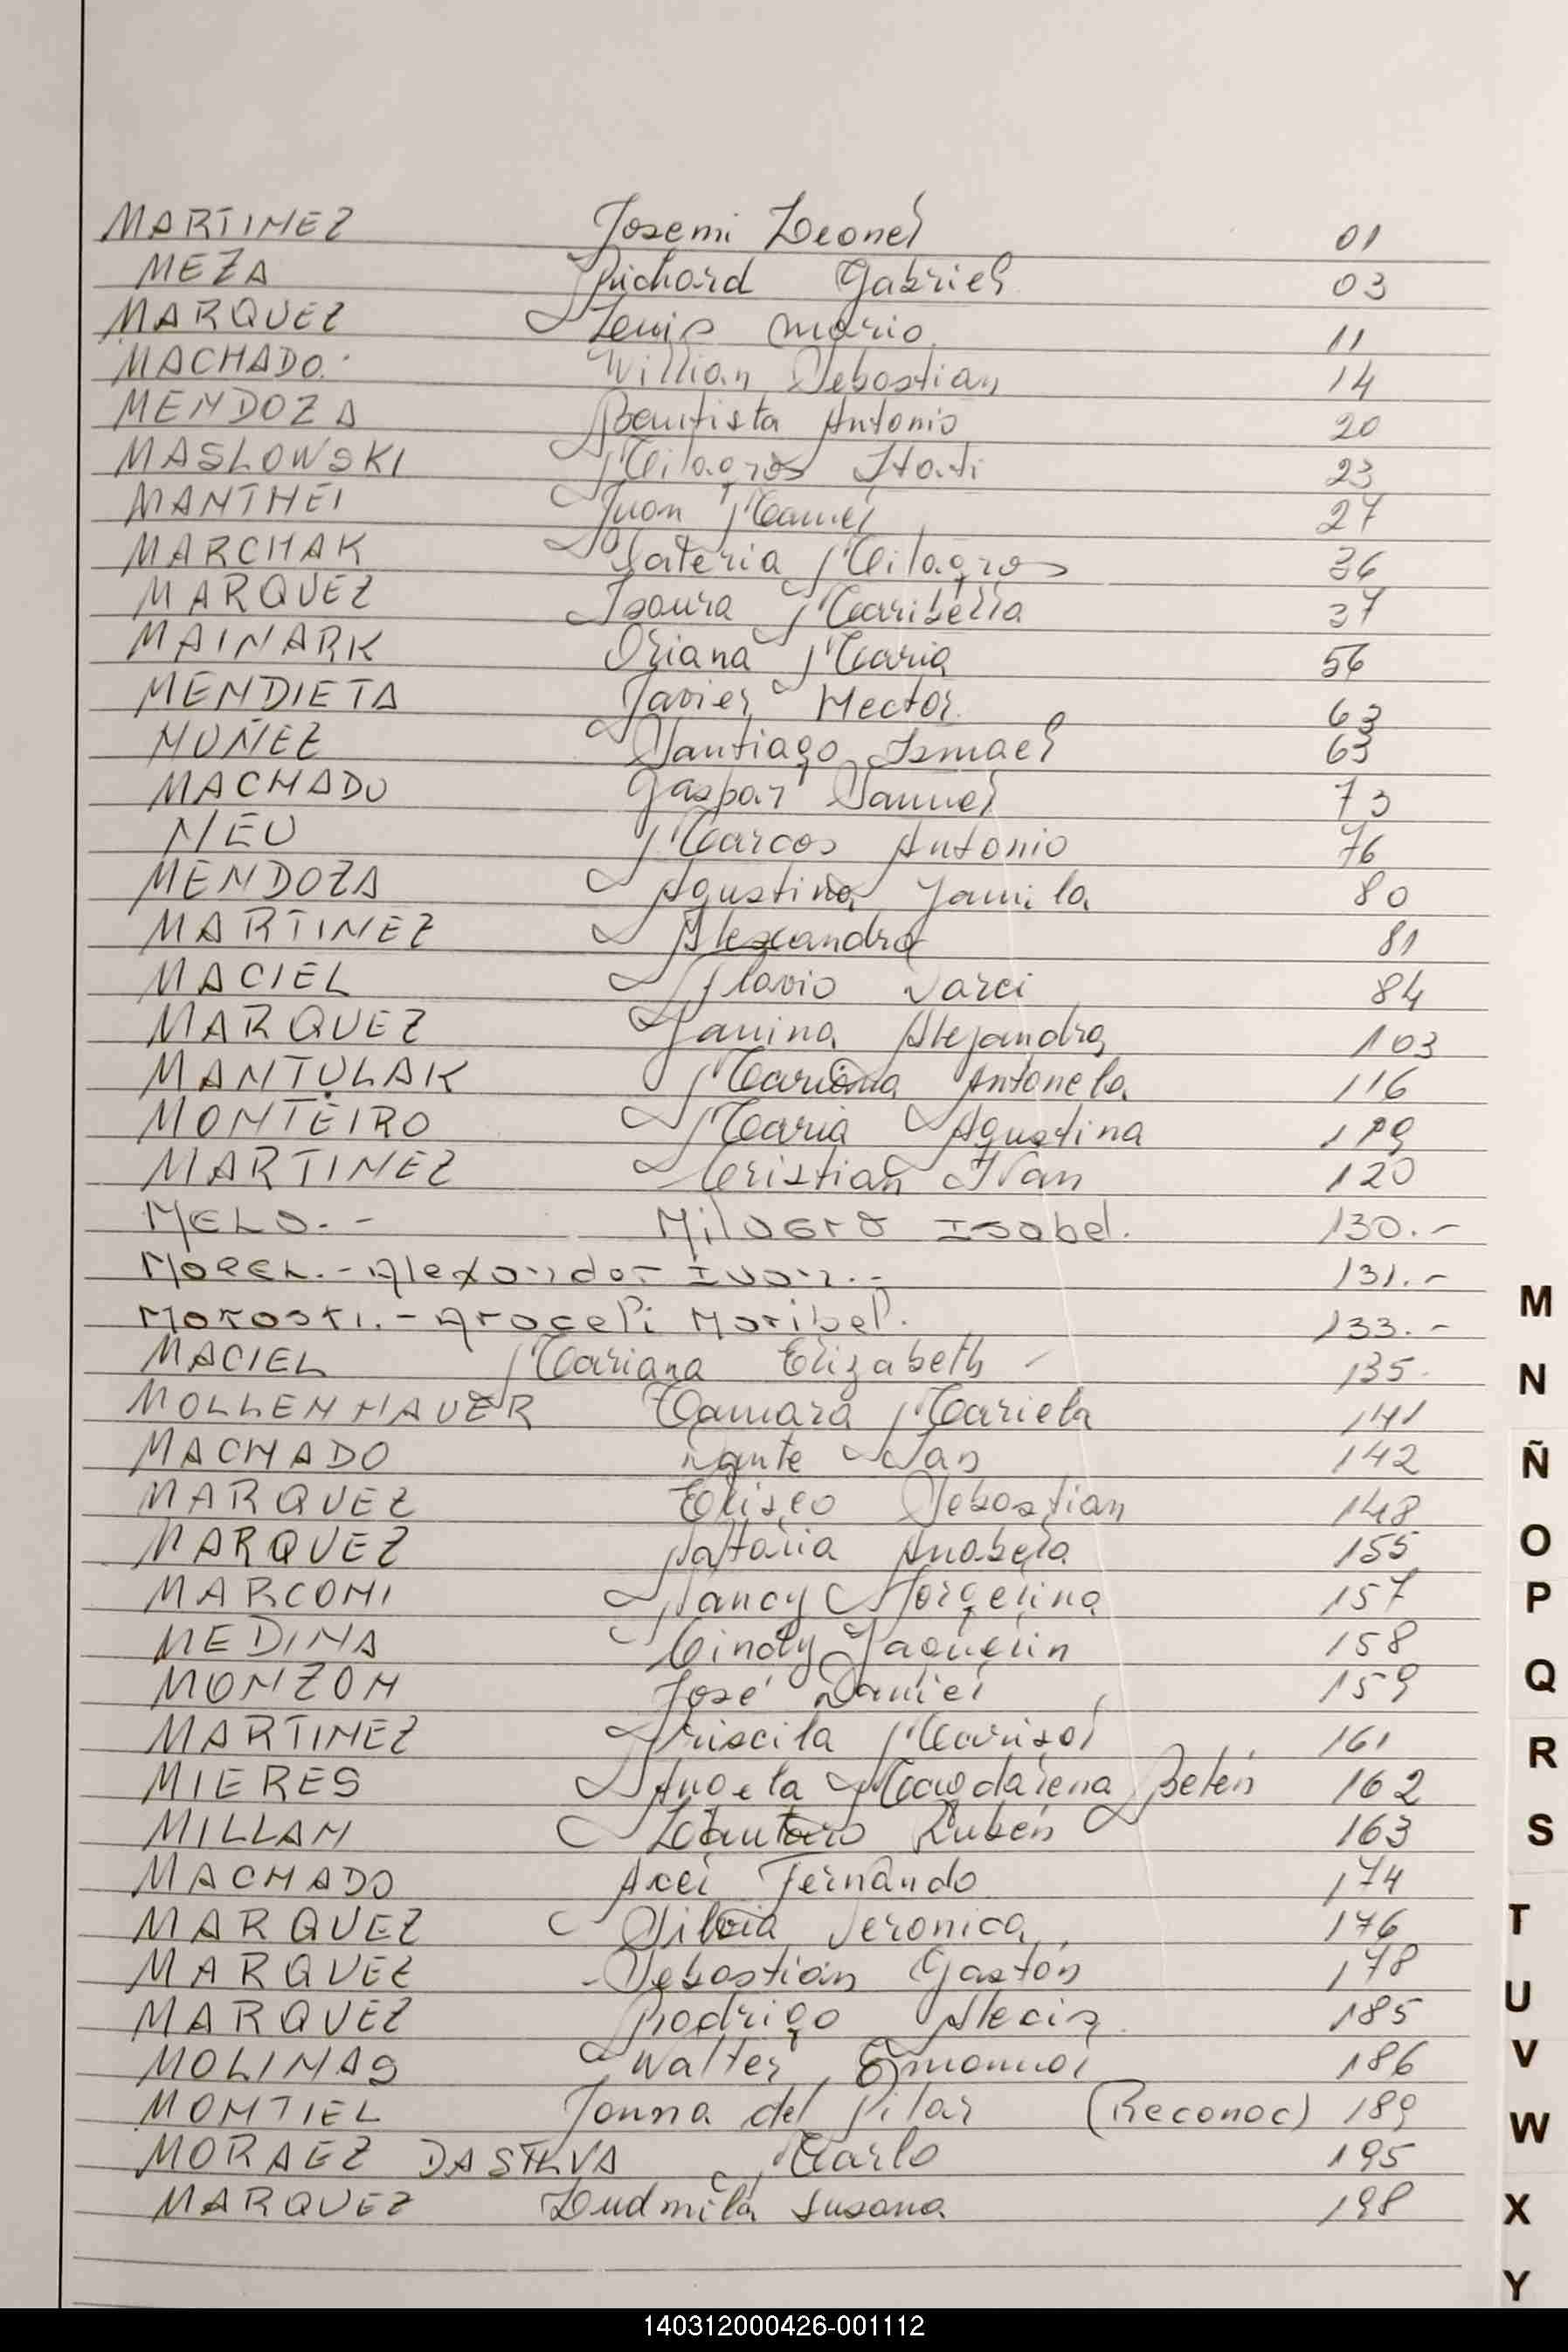 MARTINEZ Josemi Leonel 01
MEZA Richard Gabriel 03
MARQUEZ Luis Mario 11
MACHADO Willian Sebastian 14
MENDOZA Bautista Antonio 20
MASLOWSKI Milagros Itati 23
MANTHEI Juan Manuel 27
MARCHAK Valeria Milagros 36
MARQUEZ Isaura Maribella 37
MAINARK Oriana Maria 56
MENDIETA Javier Hector 63
MUÑEZ Santiago Ismael 63
MACHADO Gaspar Samuel 73
NEU Marcos Antonio 76
MENDOZA Agustina Yamila 80
MARTINEZ Alexandra 81
MACIEL Flavio Darci 84
MARQUEZ Yanina Alejandra 103
MANTULAK Mariana Antonela 116
MONTEIRO Maria Agustina 119
MARTINEZ Cristian Ivan 120
MELO.- Milagro Isabel. 130.-
MOREL.- Alexander Ivan.- 131.-
MOROSKI.- Araceli Maribel. 133.-
MACIEL Mariana Elizabeth 135-
MOLLENHAUER Tamara Mariela 141
MACHADO Dante Ian 142
MARQUEZ Eliseo Sebastian 148
MARQUEZ Natalia Anabela 155
MARCONI Nancy Jorgelina 157
MEDINA Cindy Jaquelin 158
MONZON José Daniel 159
MARTINEZ Priscila Marisol 161
MIERES Angela Magdalena Belén 162
MILLAN Lautaro Rubén 163
MACHADO Axel Fernando 174
MARQUEZ Silvia Veronica 176
MARQUEZ Sebastián Gastón 178
MARQUEZ Rodrigo Alexis 185
MOLINAS Walter Emanuel 186
MONTIEL Joana del Pilar (Reconoc) 189
MORAEZ DA SILVA Marlo 195
MARQUEZ Ludmila Susana 198
M
N
Ñ
O
P
Q
R
S
T
U
V
W
X
Y
140312000426-001112